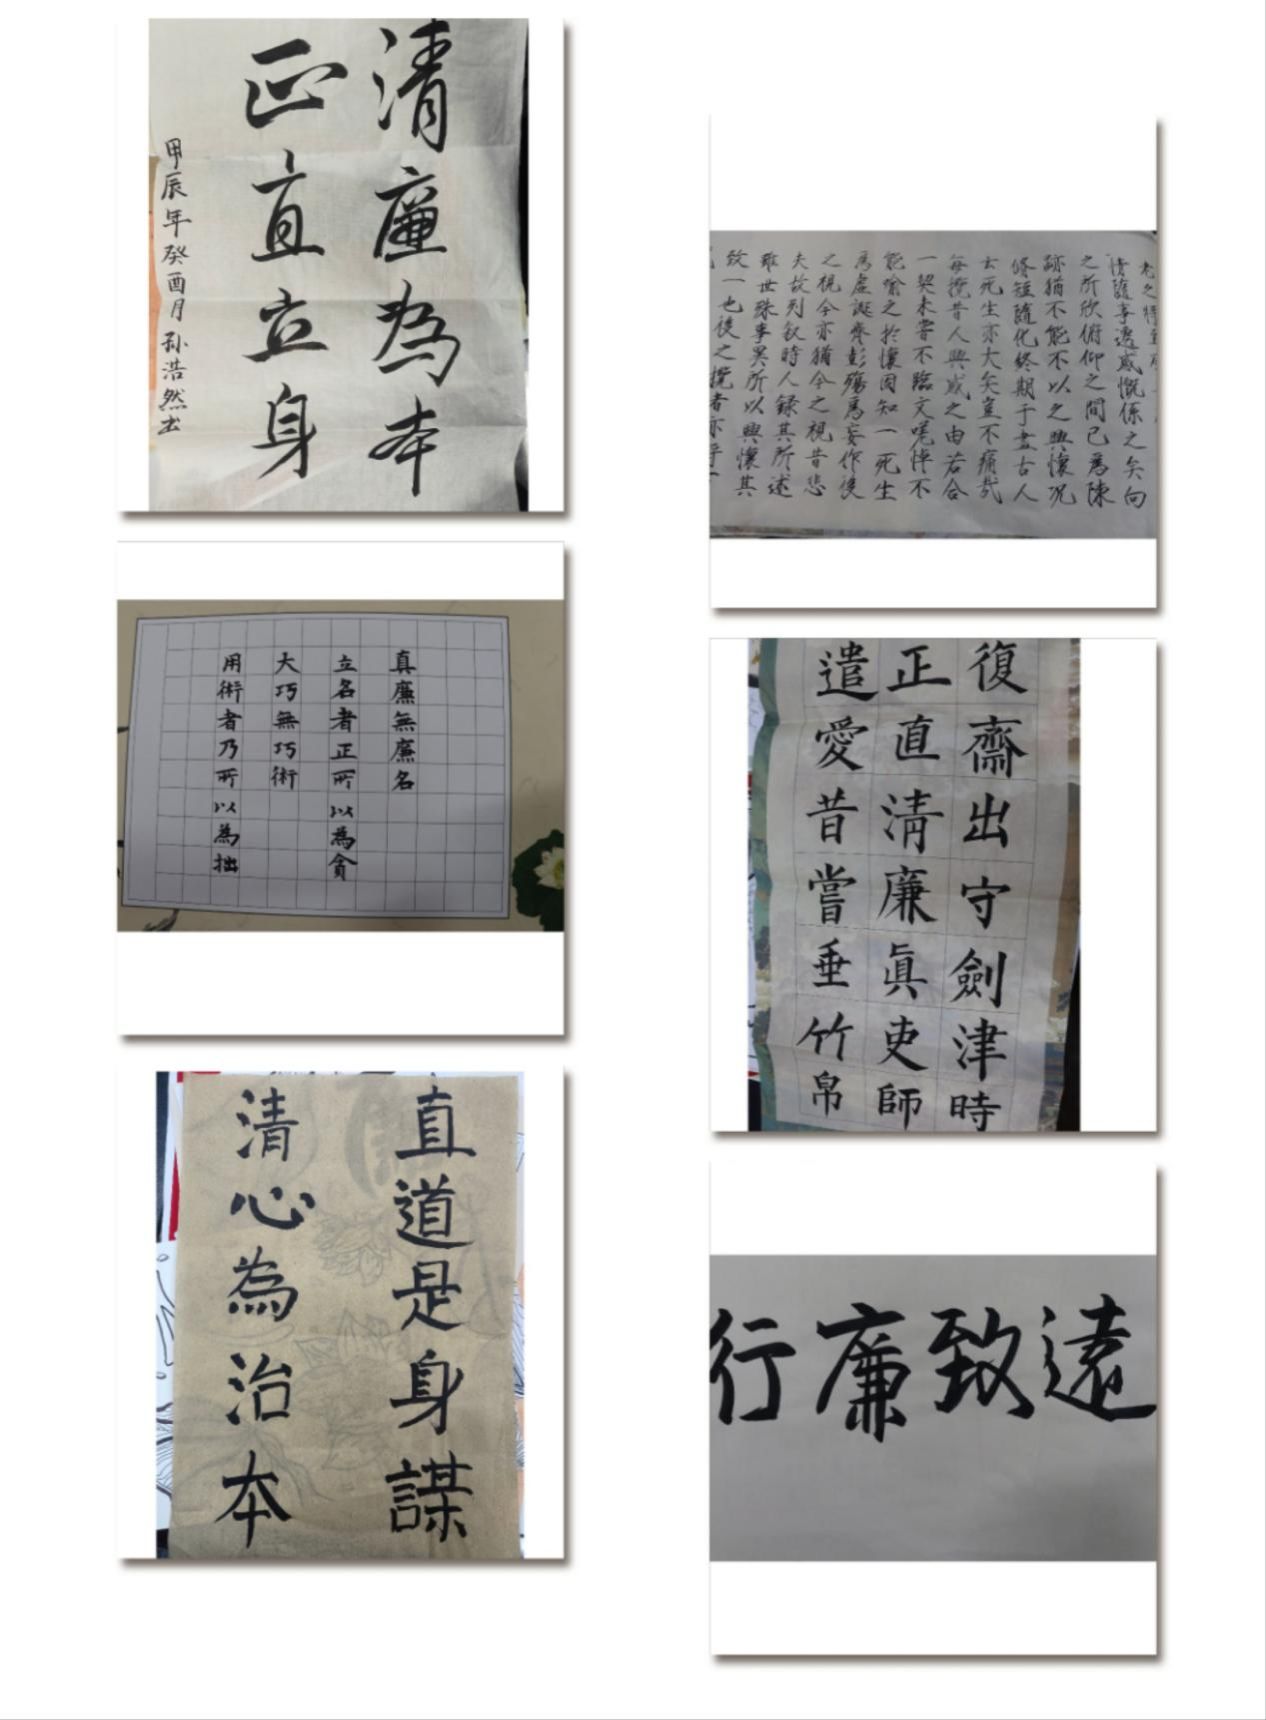 清廉為本
正直立身
甲辰年癸酉月孙浩然书
情隨事遷感慨係之矣向
之所欣俯仰之間已為陳
跡猶不能不以之興懷況
修短隨化終期于盡古人
云死生亦大矣豈不痛哉
每攬昔人興感之由若合
一契未嘗不臨文嗟悼不
能喻之於懷固知一死生
為虛誕齊彭殤為妄作後
之視今亦猶今之視昔悲
夫故列敘時人錄其所述
雖世殊事異所以興懷其
致一也後之攬者亦
真廉無廉名
立名者正所以為貪
大巧無巧術
用術者乃所以為拙
復齋出守劍津時
正直清廉眞吏師
遺愛昔嘗垂竹帛
直道是身謀
清心為治本
行廉致遠